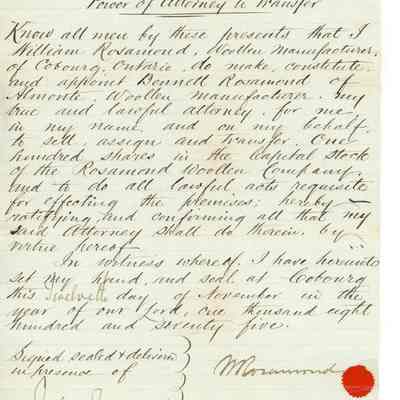 Power of Attorney to Transfer
Know all men by these presents that I
William Rosamond, Woollen Manufacturer,
of Cobourg, Ontario, do make, constitute
and appoint Bennett Rosamond of
Almonte Woollen Manufacturer my
true and lawful attorney, for me
in my name, and on my behalf,
to sell, assign and transfer, One
hundred shares in the Capital Stock
of the Rosamond Woollen Company,
and to do all lawful acts requisite
for effecting the premises; hereby
ratifying and confirming all that my
said Attorney shall do therein, by
virtue hereof
In witness whereof, I have hereunto
set my hand, and seal, at Cobourg
this Twelvth day of November in the
year of our Lord, one thousand eight
hundred and seventy five.
Signed sealed & deliver
in presence of
W Rosamond